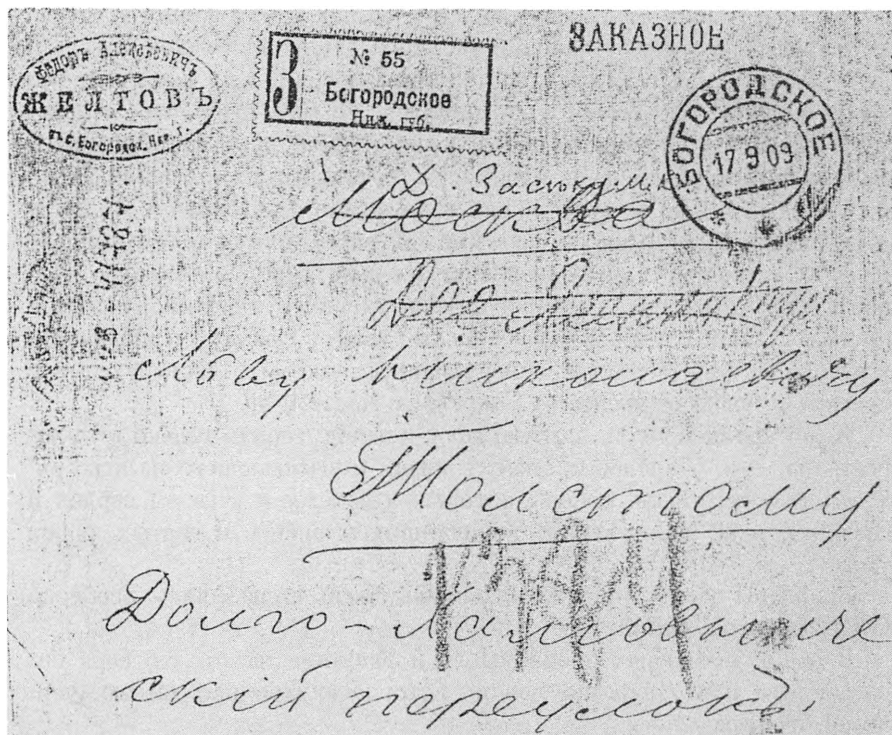 ЗАКАЗНОЕ
Ѳедоръ Алексѣевичъ
ЖЕЛТОВЪ
въ с. Богородск. Ниж. г.
З
№ 55
Богородское
Ниж. губ.
БОГОРОДСКОЕ
17 9 09
Д. Засѣка М. К.
Москва
Льву Николаевичу
Толстому
Долго-Хамовниче
скій переулокъ.